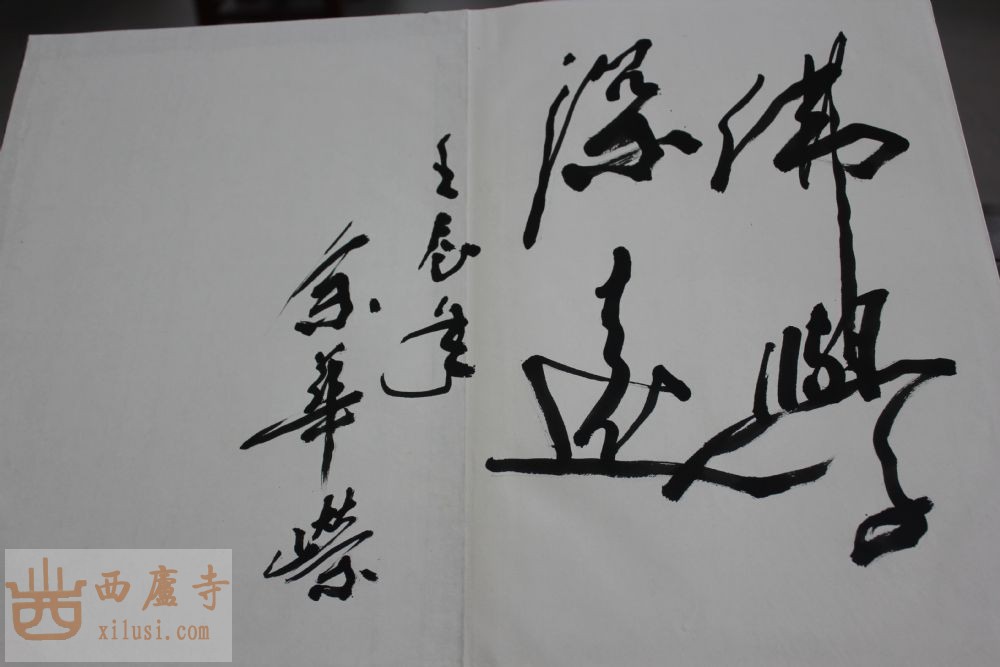 佛學
深遠
壬辰年
華榮
西廬寺
xilusi.com